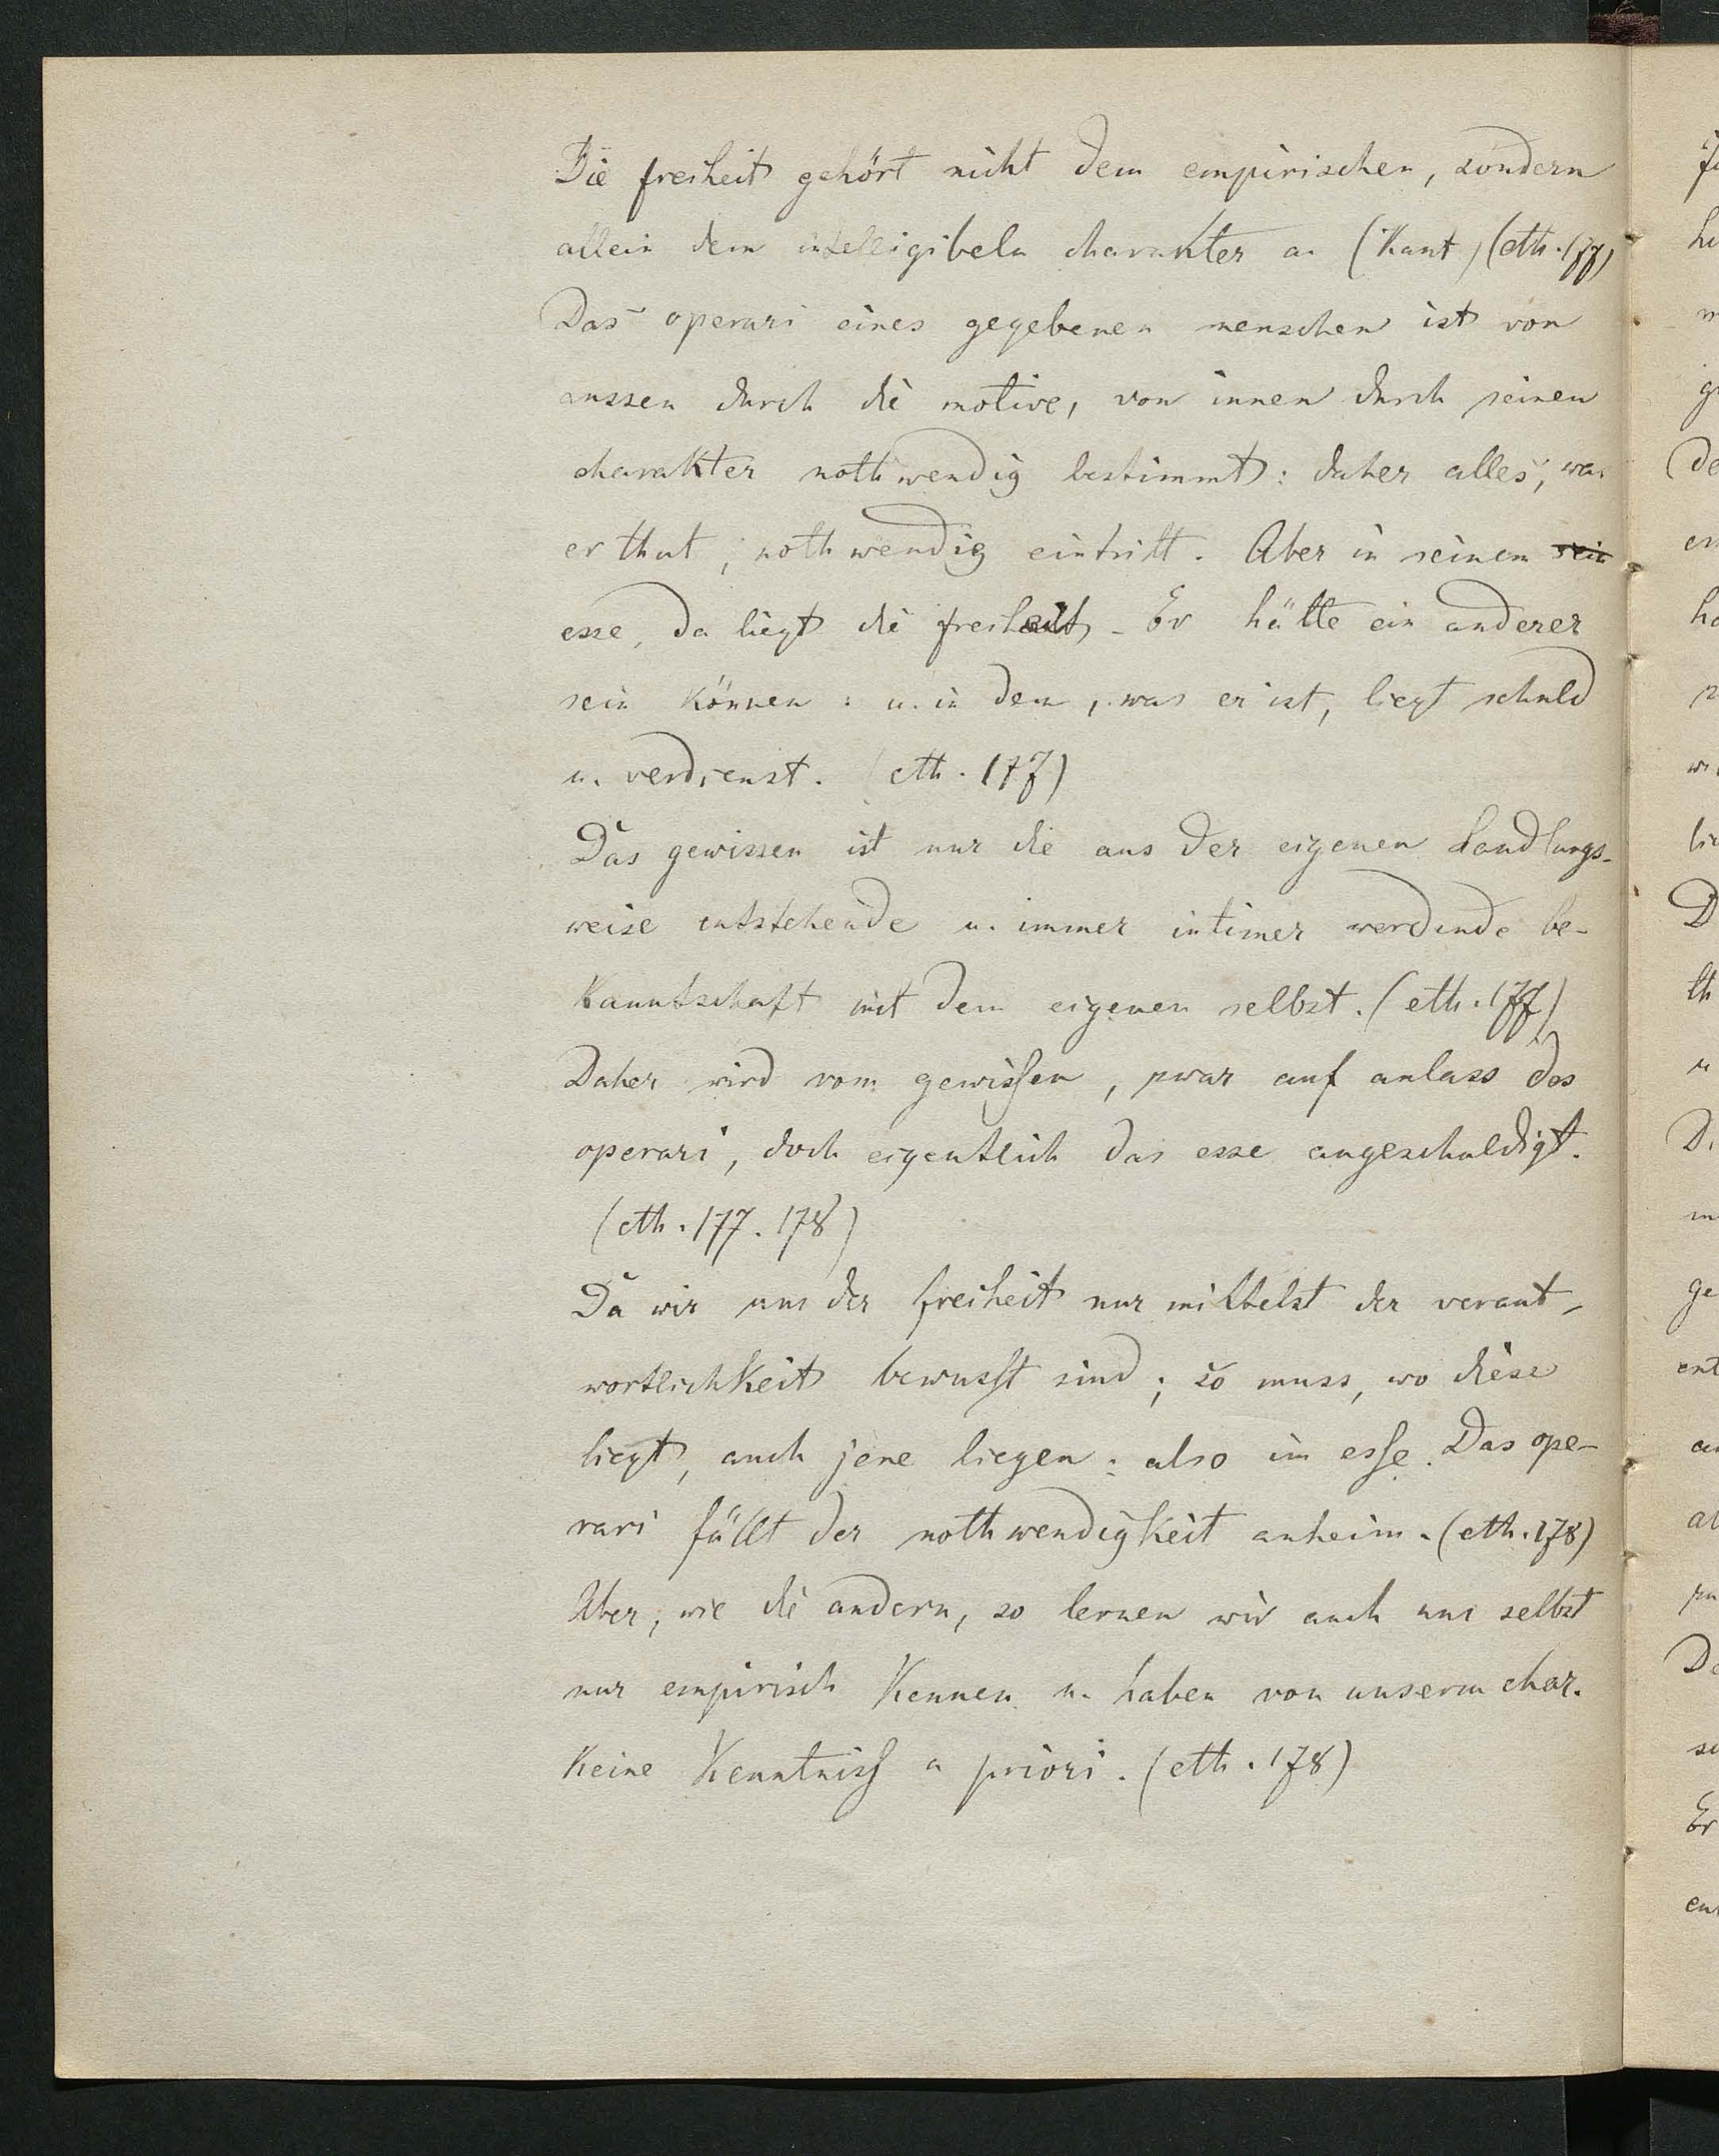 Die freiheit gehört nicht dem empirischen, sondern
allein dem intelligibeln charakter an (Kant) (eth. 177)
Das operari eines gegebenen menschen ist von
aussen durch die motive, von innen durch seinen
charakter nothwendig bestimmt: daher alles, was
er thut, nothwendig eintritt. Aber in seinem sein
esse, da liegt die freiheit. Er hätte ein anderer
sein können: u. in dem, was er ist, liegt schuld
u. verdienst. (eth. 177)
Das gewissen ist nur die aus der eigenen handlungs-
weise entstehende u. immer intimer werdende be-
kanntschaft mit dem eigenen selbst. (eth. 177)
Daher wird vom gewissen, zwar auf anlass des
operari, doch eigentlich das esse angeschuldigt.
(eth. 177. 178)
Da wir uns der freiheit nur mittelst der verant-
wortlichkeit bewusst sind; so muss, wo diese
liegt, auch jene liegen: also im esse. Das ope-
rari fällt der nothwendigkeit anheim. (eth. 178)
Aber, wie die andern, so lernen wir auch uns selbst
nur empirisch kennen u. haben von unserm char.
keine kenntniss a priori. (eth. 178)